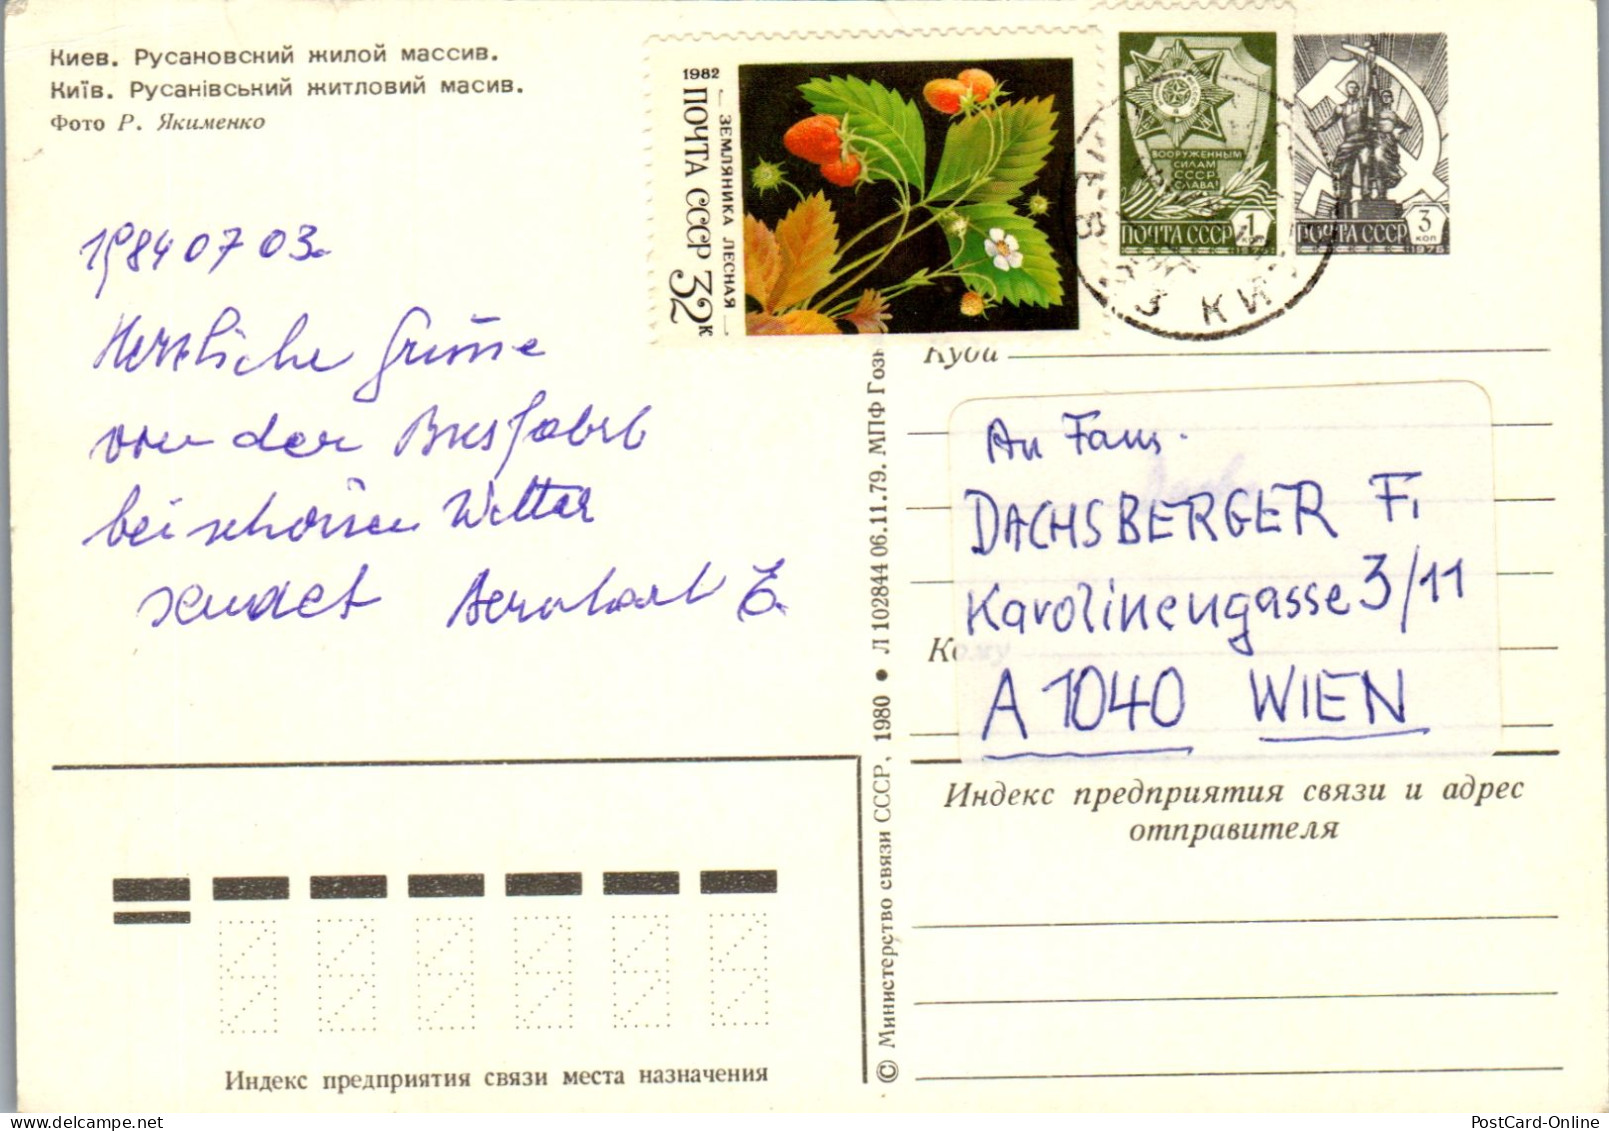 Киев. Русановский жилой массив.
Київ. Русанівський житловий масив.
Фото Р. Якименко
1982
ПОЧТА СССР 32 к
ЗЕМЛЯНИКА ЛЕСНАЯ
ВООРУЖЕННЫМ
СИЛАМ
СССР
СЛАВА!
1 коп
ПОЧТА СССР
3 коп
ПОЧТА СССР
1976
КИ
1984 07 03.
Herzliche Grüsse
von der Busfahrt
bei schönen Wetter
sendet E.
Куда
An Fam.
DACHSBERGER F.
Karolinengasse 3/11
Кому
A 1040 WIEN
Индекс предприятия связи и адрес
отправителя
© Министерство связи СССР, 1980 ● Л 102844 06.11.79. МПФ Гозн
Индекс предприятия связи места назначения
PostCard-Online